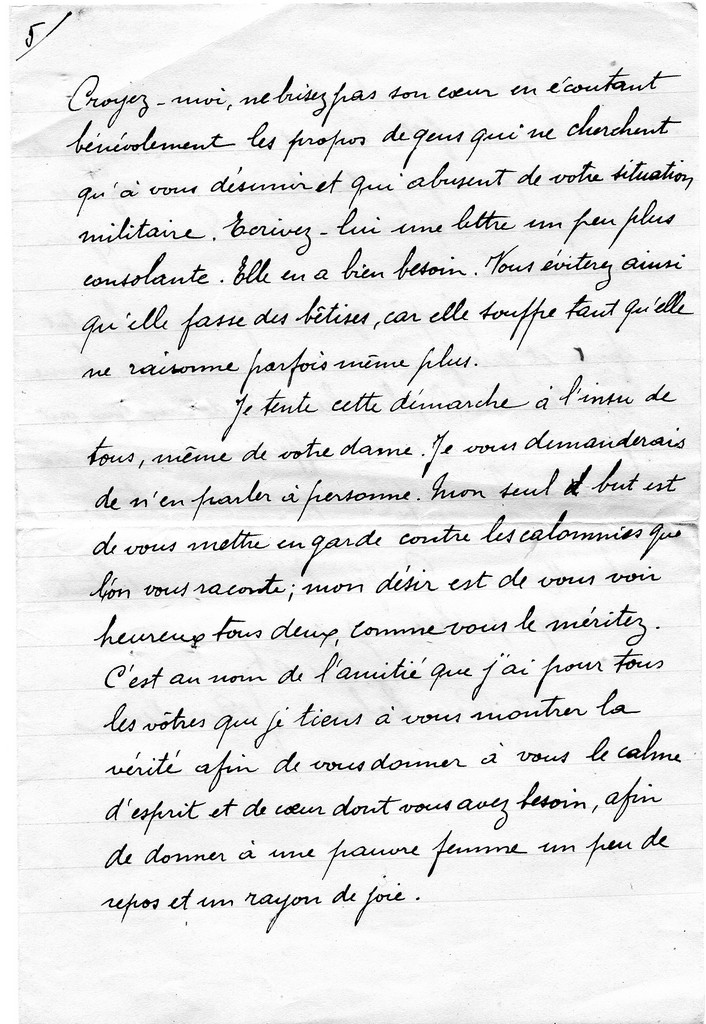 5/
Croyez-moi, ne brisez pas son cœur en écoutant
bénévolement les propos de gens qui ne cherchent
qu'à vous désunir et qui abusent de votre situation
militaire. Ecrivez-lui une lettre un peu plus
consolante. Elle en a bien besoin. Vous éviterez ainsi
qu'elle fasse des bêtises, car elle souffre tant qu'elle
ne raisonne parfois même plus.
Je tente cette démarche à l'insu de
tous, même de votre dame. Je vous demanderais
de n'en parler à personne. Mon seul but est
de vous mettre en garde contre les calomnies que
l'on vous raconte; mon désir est de vous voir
heureux tous deux, comme vous le méritez.
C'est au nom de l'amitié que j'ai pour tous
les vôtres que je tiens à vous montrer la
vérité afin de vous donner à vous le calme
d'esprit et de cœur dont vous avez besoin, afin
de donner à une pauvre femme un peu de
repos et un rayon de joie.